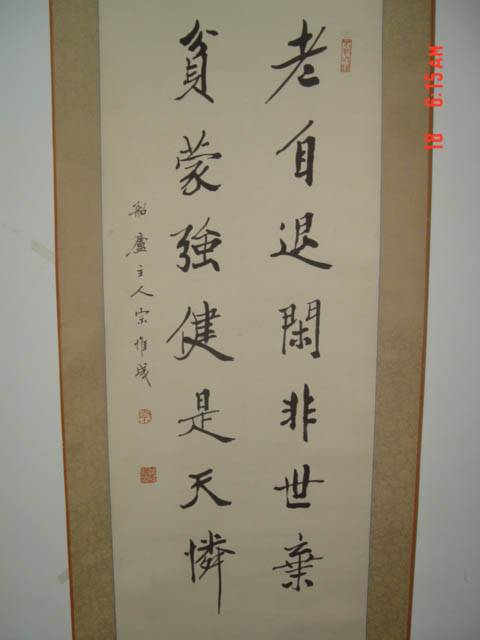 老自退閑非世棄
貧蒙強健是天憐
船廬主人宗惟成
6:15 AM